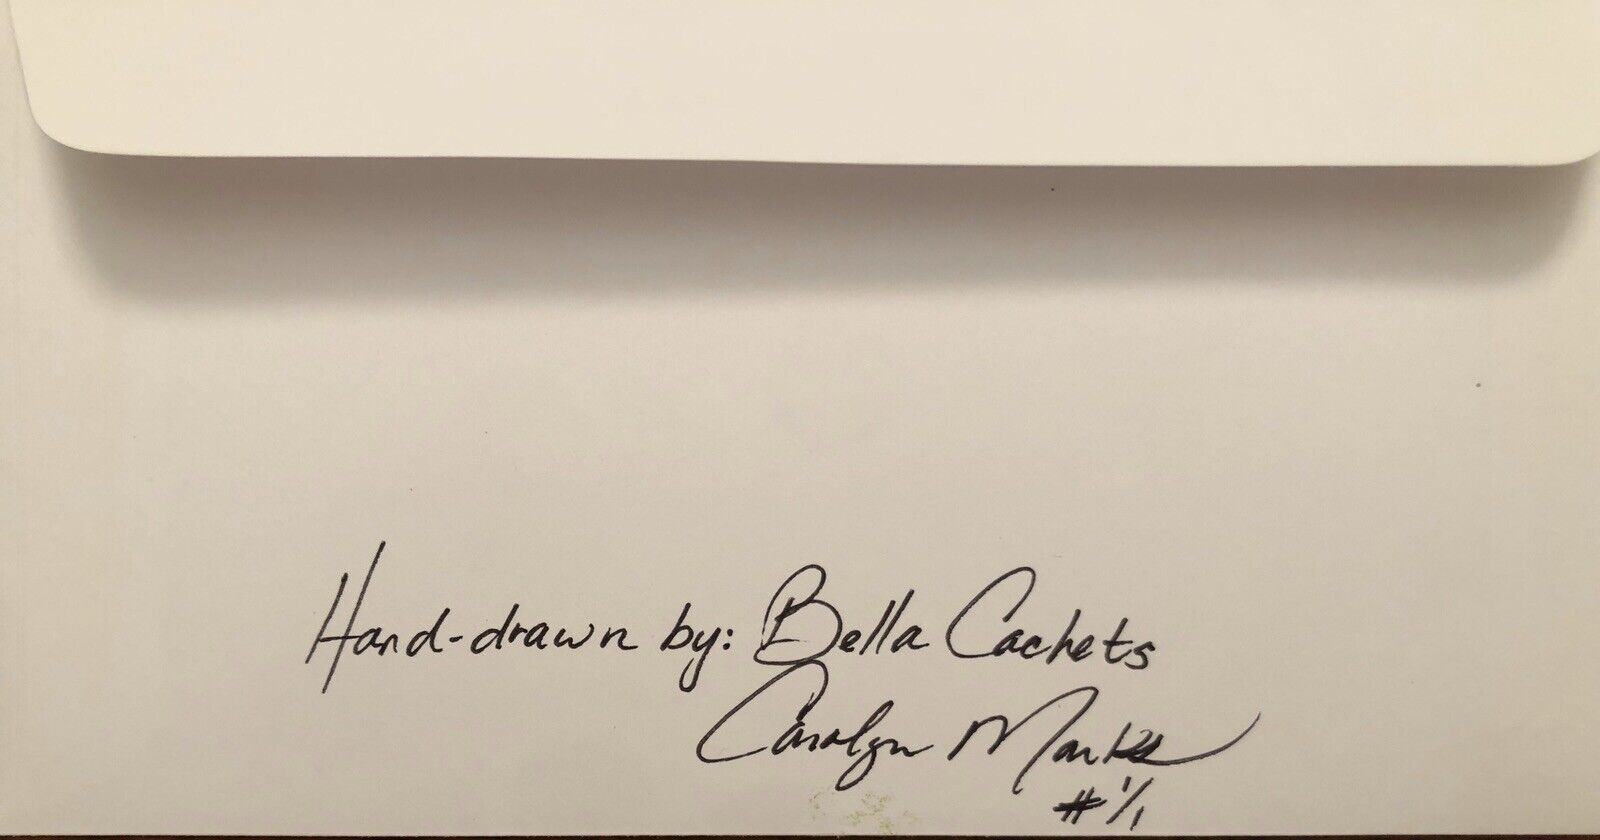 Hand-drawn by: Bella Cachets
Carolyn Marks
# 1/1